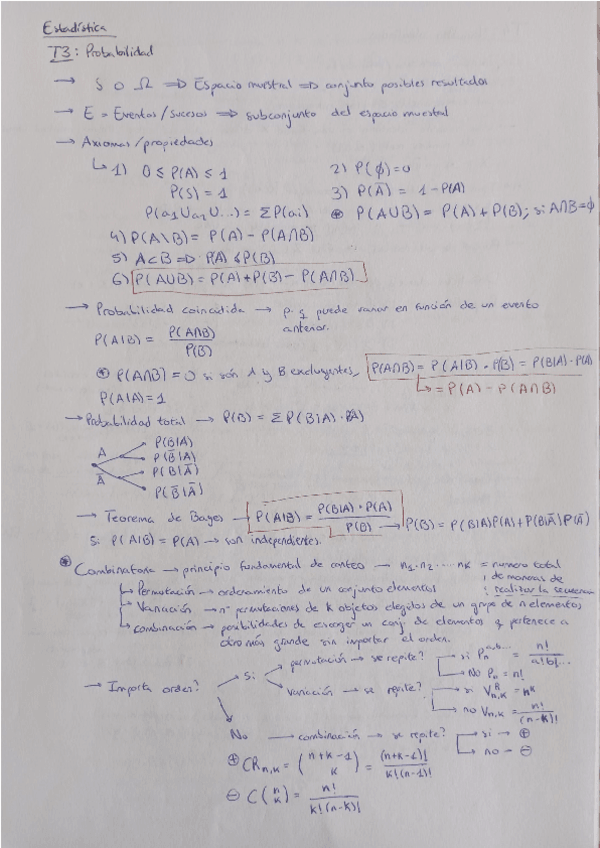 Estadística
T3: Probabilidad
→ S o Ω ⇒ Espacio muestral ⇒ conjunto posibles resultados
→ E = Eventos/Sucesos ⇒ subconjunto del espacio muestral
→ Axiomas/propiedades
↳ 1) 0 ≤ P(A) ≤ 1
P(S) = 1
P(a₁∪a₂∪...) = ΣP(ai)
2) P(ϕ)=0
3) P(Ā) = 1-P(A)
⊛ P(A∪B) = P(A)+P(B); si A∩B=ϕ
4) P(A\B)= P(A) - P(A∩B)
5) A⊂B ⇒ P(A) ≤ P(B)
6) P(A∪B) = P(A)+P(B) - P(A∩B)
→ Probabilidad → p. q puede variar en función de un evento
anterior.
P(A|B) = P(A∩B) / P(B)
⊛ P(A∩B) = 0 si son A y B excluyentes, P(A∩B) = P(A|B) · P(B) = P(B|A) · P(A)
↳ = P(A) - P(A∩B)
P(A|A) = 1
→ Probabilidad total → P(B) = ΣP(B|A) · P(A)
A P(B|A)
P(B̄|A)
Ā P(B|Ā)
P(B̄|Ā)
→ Teorema de Bayes → P(A|B) = P(B|A) · P(A) / P(B) → P(B) = P(B|A)P(A)+P(B|Ā)P(Ā)
Si P(A|B) = P(A) → son independientes.
⊛ Combinatoria → principio fundamental de conteo → n₁·n₂·····nk = numero total
de maneras de
realizar la secuencia
↳ Permutación → ordenamiento de un conjunto elementos
↳ Variación → nº permutaciones de k objetos elegidos de un grupo de n elementos
↳ combinación → posibilidades de escoger un conj. de elementos q pertenece a
otro más grande sin importar el orden.
→ Importa orden?
Si
permutación → se repite? → si Pₙ^{a,b...} = n! / a!b!...
→ No Pₙ = n!
variación → se repite? → si V^R_{n,k} = n^k
→ no V_{n,k} = n! / (n-k)!
No → combinación → se repite? → si → ⊕
→ no → ⊖
⊕ CR_{n,k} = (n+k-1 k) = (n+k-1)! / k!(n-1)!
⊖ C(n k) = n! / k!(n-k)!